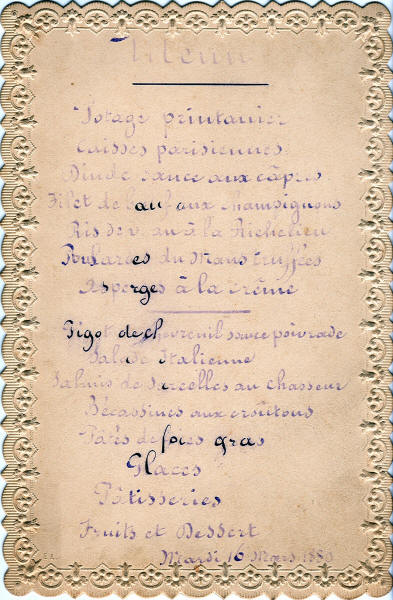 Menu
Potage printanier
Caisses parisiennes
Dinde sauce aux câpres
Filet de bœuf aux champignons
Ris de veau à la Richelieu
Poulardes du Mans truffées
Asperges à la crême
Gigot de chevreuil sauce poivrade
Salade Italienne
Salmis de Sarcelles au chasseur
Bécassines aux croûtons
Pâtés de foies gras
Glaces
Pâtisseries
Fruits et Dessert
Mardi 16 Mars 1880